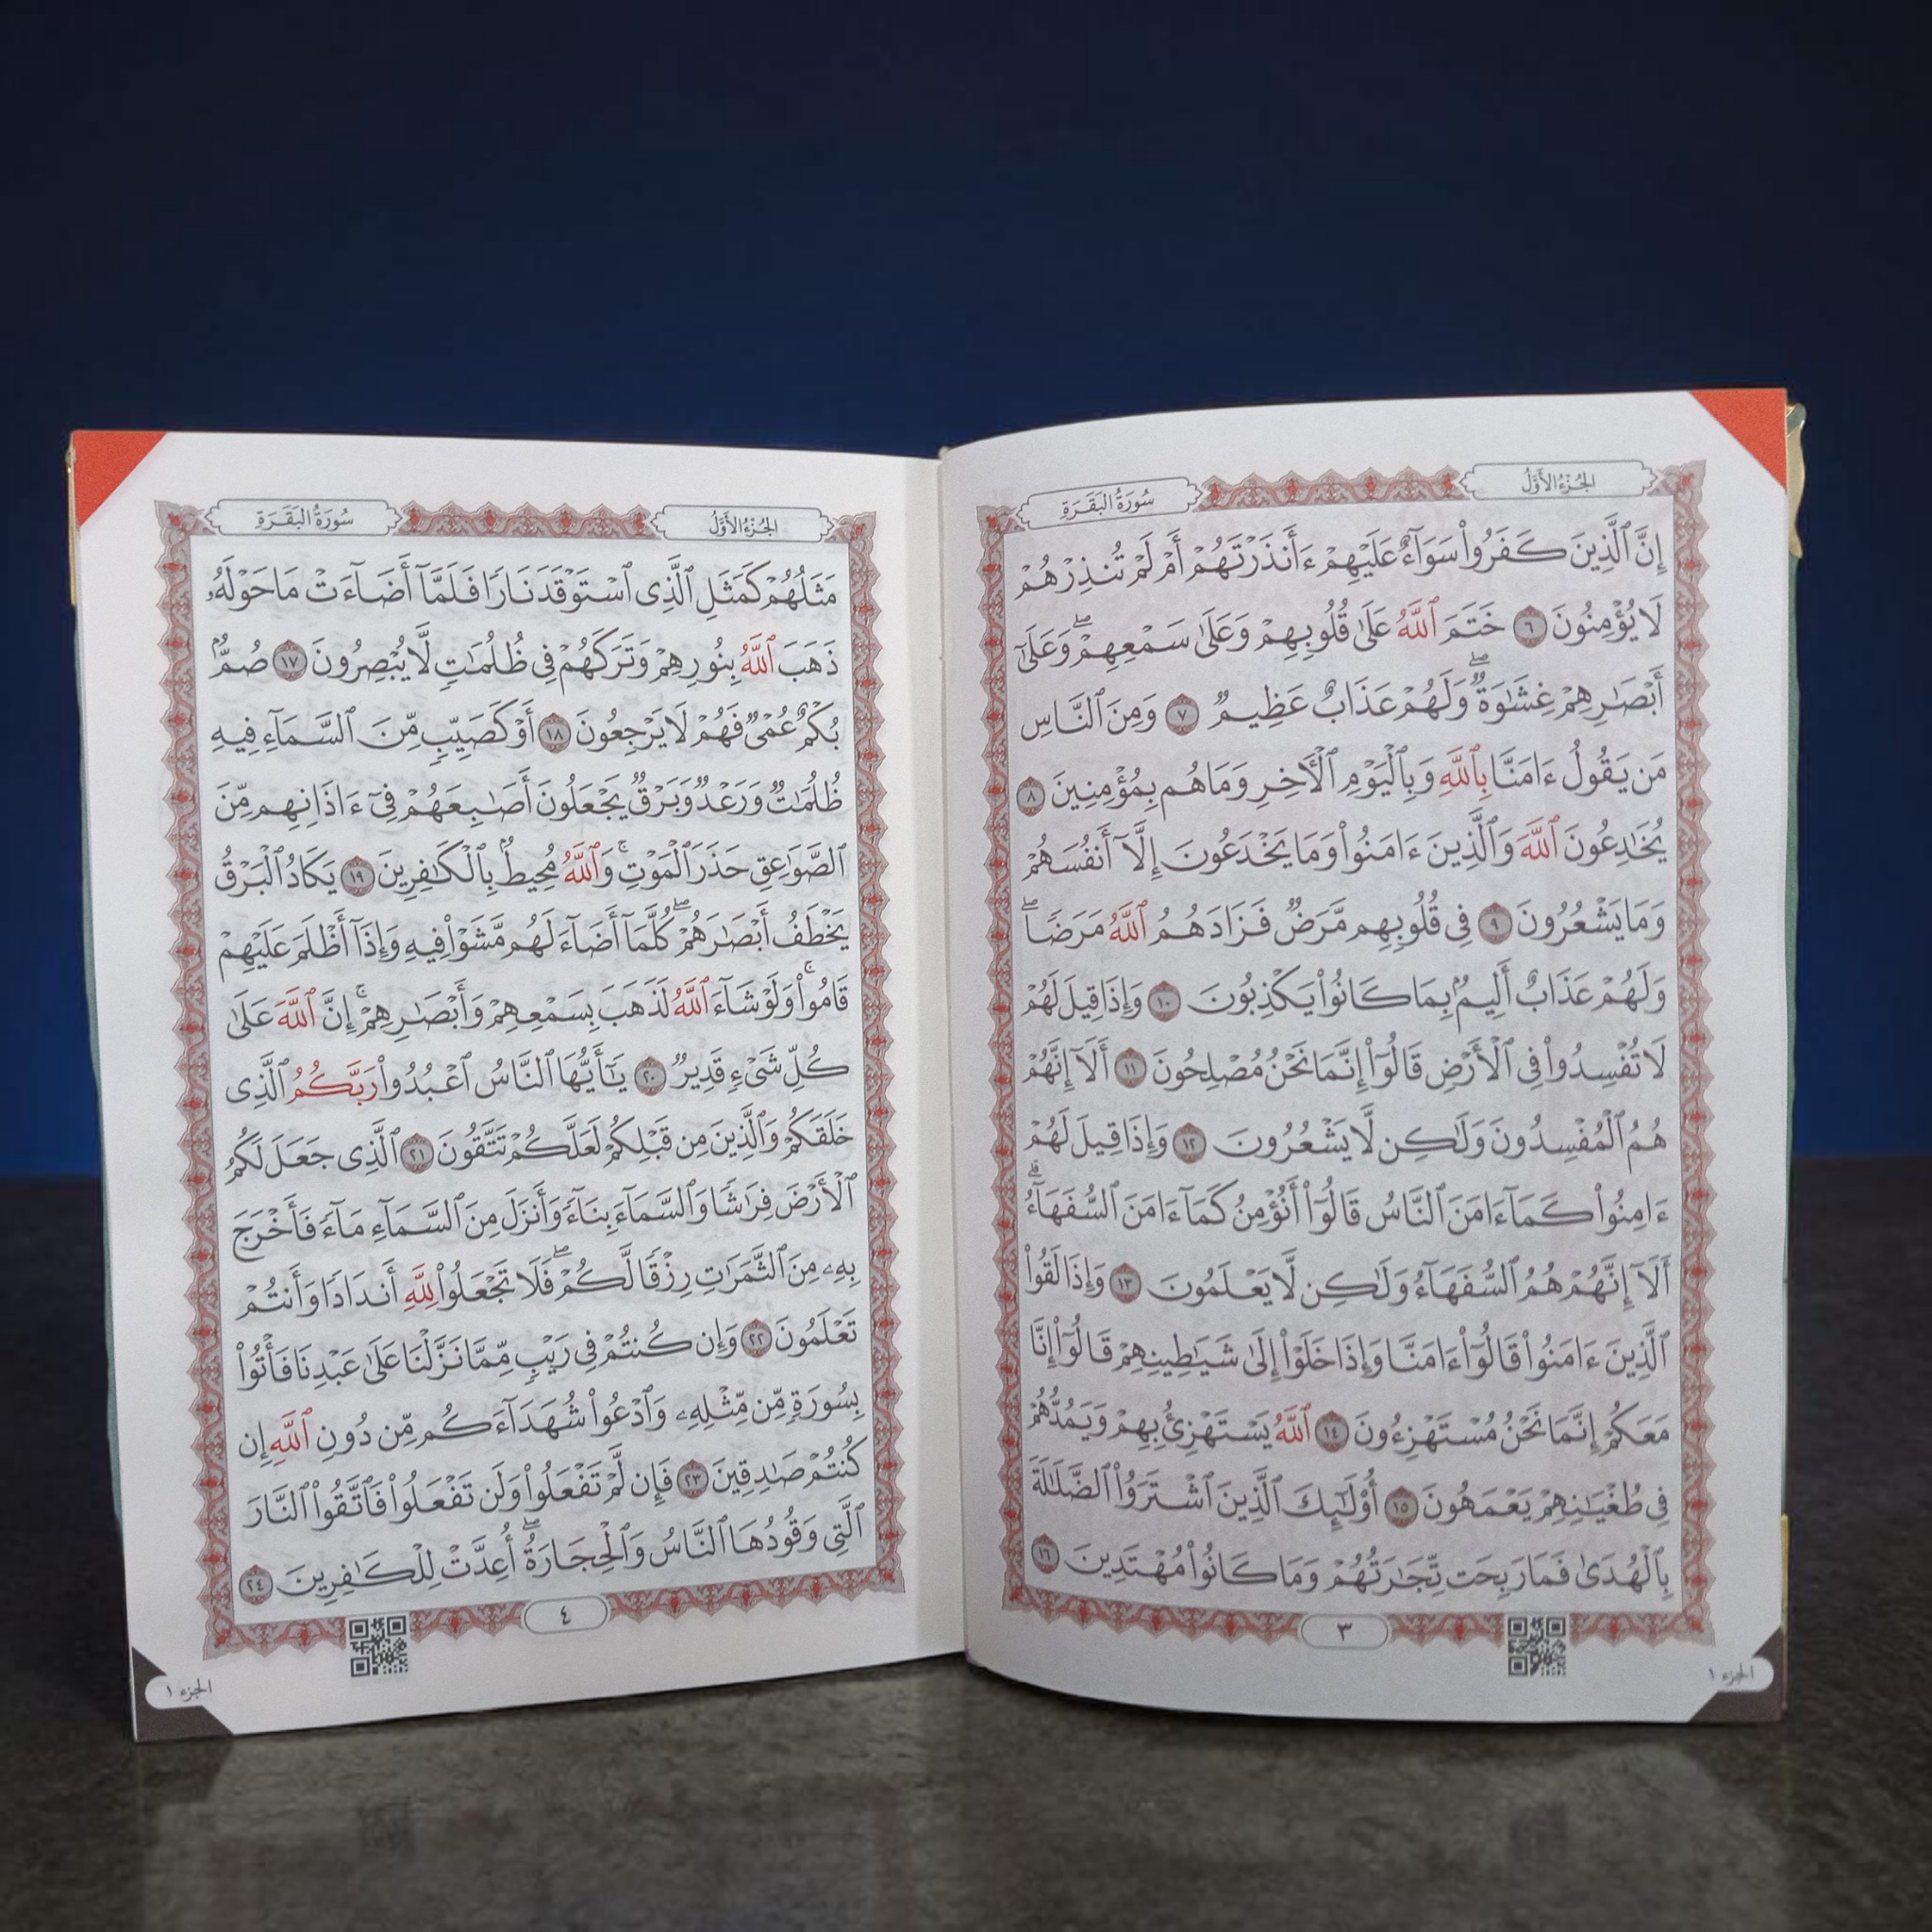 الجُزْءُ الأَوَّلُ
سُورَةُ البَقَرَةِ
إِنَّ ٱلَّذِينَ كَفَرُوا۟ سَوَآءٌ عَلَيْهِمْ ءَأَنذَرْتَهُمْ أَمْ لَمْ تُنذِرْهُمْ
لَا يُؤْمِنُونَ ٦ خَتَمَ ٱللَّهُ عَلَىٰ قُلُوبِهِمْ وَعَلَىٰ سَمْعِهِمْ ۖ وَعَلَىٰٓ
أَبْصَـٰرِهِمْ غِشَـٰوَةٌ ۖ وَلَهُمْ عَذَابٌ عَظِيمٌ ٧ وَمِنَ ٱلنَّاسِ
مَن يَقُولُ ءَامَنَّا بِٱللَّهِ وَبِٱلْيَوْمِ ٱلْـَٔاخِرِ وَمَا هُم بِمُؤْمِنِينَ ٨
يُخَـٰدِعُونَ ٱللَّهَ وَٱلَّذِينَ ءَامَنُوا۟ وَمَا يَخْدَعُونَ إِلَّآ أَنفُسَهُمْ
وَمَا يَشْعُرُونَ ٩ فِى قُلُوبِهِم مَّرَضٌ فَزَادَهُمُ ٱللَّهُ مَرَضًا ۖ
وَلَهُمْ عَذَابٌ أَلِيمٌۢ بِمَا كَانُوا۟ يَكْذِبُونَ ١٠ وَإِذَا قِيلَ لَهُمْ
لَا تُفْسِدُوا۟ فِى ٱلْأَرْضِ قَالُوٓا۟ إِنَّمَا نَحْنُ مُصْلِحُونَ ١١ أَلَآ إِنَّهُمْ
هُمُ ٱلْمُفْسِدُونَ وَلَـٰكِن لَّا يَشْعُرُونَ ١٢ وَإِذَا قِيلَ لَهُمْ
ءَامِنُوا۟ كَمَآ ءَامَنَ ٱلنَّاسُ قَالُوٓا۟ أَنُؤْمِنُ كَمَآ ءَامَنَ ٱلسُّفَهَآءُ ۗ
أَلَآ إِنَّهُمْ هُمُ ٱلسُّفَهَآءُ وَلَـٰكِن لَّا يَعْلَمُونَ ١٣ وَإِذَا لَقُوا۟
ٱلَّذِينَ ءَامَنُوا۟ قَالُوٓا۟ ءَامَنَّا وَإِذَا خَلَوْا۟ إِلَىٰ شَيَـٰطِينِهِمْ قَالُوٓا۟ إِنَّا
مَعَكُمْ إِنَّمَا نَحْنُ مُسْتَهْزِءُونَ ١٤ ٱللَّهُ يَسْتَهْزِئُ بِهِمْ وَيَمُدُّهُمْ
فِى طُغْيَـٰنِهِمْ يَعْمَهُونَ ١٥ أُو۟لَـٰٓئِكَ ٱلَّذِينَ ٱشْتَرَوُا۟ ٱلضَّلَـٰلَةَ
بِٱلْهُدَىٰ فَمَا رَبِحَت تِّجَـٰرَتُهُمْ وَمَا كَانُوا۟ مُهْتَدِينَ ١٦
٣
الجزء ١
الجُزْءُ الأَوَّلُ
سُورَةُ البَقَرَةِ
مَثَلُهُمْ كَمَثَلِ ٱلَّذِى ٱسْتَوْقَدَ نَارًا فَلَمَّآ أَضَآءَتْ مَا حَوْلَهُۥ
ذَهَبَ ٱللَّهُ بِنُورِهِمْ وَتَرَكَهُمْ فِى ظُلُمَـٰتٍ لَّا يُبْصِرُونَ ١٧ صُمٌّۢ
بُكْمٌ عُمْىٌ فَهُمْ لَا يَرْجِعُونَ ١٨ أَوْ كَصَيِّبٍ مِّنَ ٱلسَّمَآءِ فِيهِ
ظُلُمَـٰتٌ وَرَعْدٌ وَبَرْقٌ يَجْعَلُونَ أَصَـٰبِعَهُمْ فِىٓ ءَاذَانِهِم مِّنَ
ٱلصَّوَٰعِقِ حَذَرَ ٱلْمَوْتِ ۚ وَٱللَّهُ مُحِيطٌۢ بِٱلْكَـٰفِرِينَ ١٩ يَكَادُ ٱلْبَرْقُ
يَخْطَفُ أَبْصَـٰرَهُمْ ۖ كُلَّمَآ أَضَآءَ لَهُم مَّشَوْا۟ فِيهِ وَإِذَآ أَظْلَمَ عَلَيْهِمْ
قَامُوا۟ ۚ وَلَوْ شَآءَ ٱللَّهُ لَذَهَبَ بِسَمْعِهِمْ وَأَبْصَـٰرِهِمْ ۚ إِنَّ ٱللَّهَ عَلَىٰ
كُلِّ شَىْءٍ قَدِيرٌ ٢٠ يَـٰٓأَيُّهَا ٱلنَّاسُ ٱعْبُدُوا۟ رَبَّكُمُ ٱلَّذِى
خَلَقَكُمْ وَٱلَّذِينَ مِن قَبْلِكُمْ لَعَلَّكُمْ تَتَّقُونَ ٢١ ٱلَّذِى جَعَلَ لَكُمُ
ٱلْأَرْضَ فِرَٰشًا وَٱلسَّمَآءَ بِنَآءً وَأَنزَلَ مِنَ ٱلسَّمَآءِ مَآءً فَأَخْرَجَ
بِهِۦ مِنَ ٱلثَّمَرَٰتِ رِزْقًا لَّكُمْ ۖ فَلَا تَجْعَلُوا۟ لِلَّهِ أَندَادًا وَأَنتُمْ
تَعْلَمُونَ ٢٢ وَإِن كُنتُمْ فِى رَيْبٍ مِّمَّا نَزَّلْنَا عَلَىٰ عَبْدِنَا فَأْتُوا۟
بِسُورَةٍ مِّن مِّثْلِهِۦ وَٱدْعُوا۟ شُهَدَآءَكُم مِّن دُونِ ٱللَّهِ إِن
كُنتُمْ صَـٰدِقِينَ ٢٣ فَإِن لَّمْ تَفْعَلُوا۟ وَلَن تَفْعَلُوا۟ فَٱتَّقُوا۟ ٱلنَّارَ
ٱلَّتِى وَقُودُهَا ٱلنَّاسُ وَٱلْحِجَارَةُ ۖ أُعِدَّتْ لِلْكَـٰفِرِينَ ٢٤
٤
الجزء ١